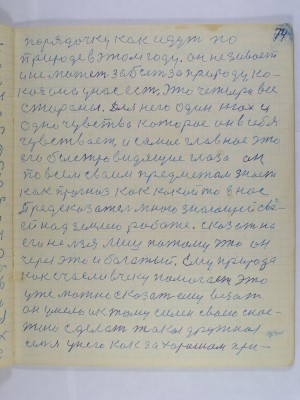 74
порядочку как идут по
природе в этом году. он не зивает
и не может забыт за природу ко-
кая она у нас ест, это четыри все
стороны. Для него один нюх и
одно чувства которае он в себя
чувствает, и самае главное это
его быстро видящие глаза он
по всем своим предметам знает
как прогноз как какой то у нас
Предсказател много знающий сво-
ей над землею работе. сказат на
его нелзя лиш потому что он
через это и богатый. Ему природа
как счасливчику помогает, это
уже можно сказат ему везёт
он умело и к тому силен своею
сделат такая дружная
семя у него как за хорошам при-